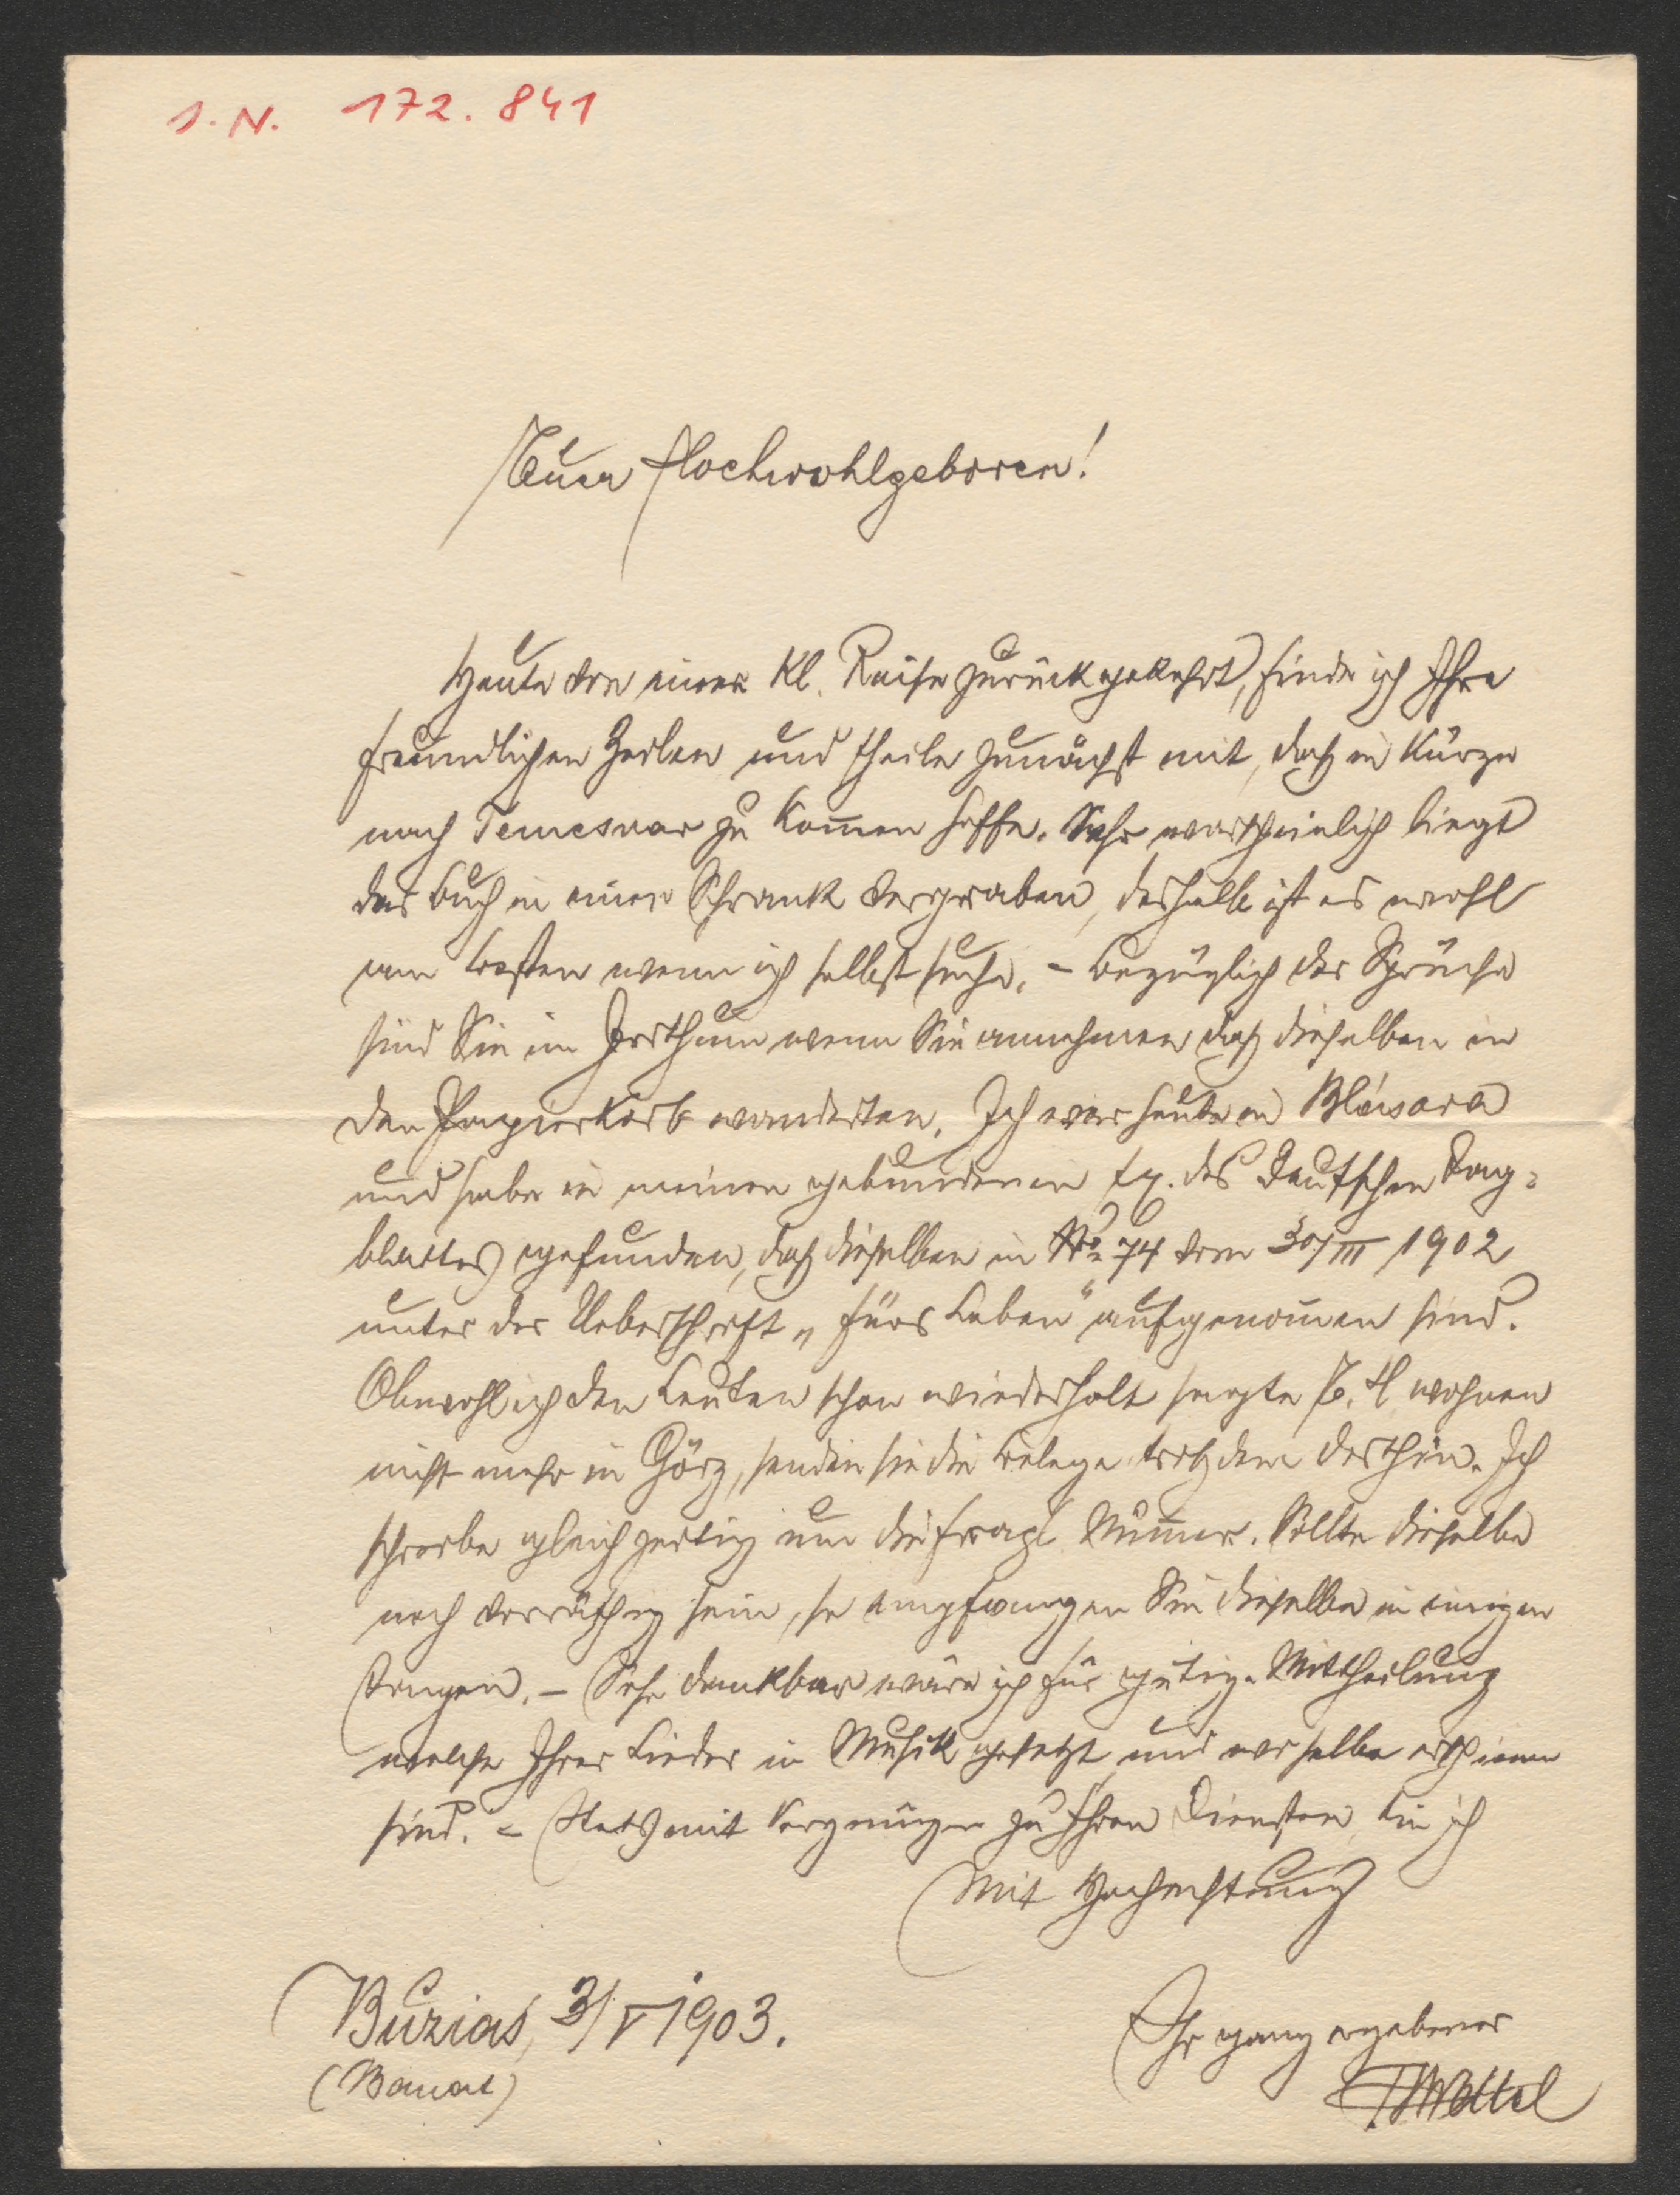 I. N. 172.841
Euer Hochwohlgeboren!
Heute von einer kl. Reise zurückgekehrt, finde ich Ihre
freundlichen Zeilen und theile zunächst mit, daß in Kürze
nach Temesvar zu kom̄en hoffe. Sehr warscheinlich liegt
das Buch in einem Schrank vergraben, deshalb ist es wohl
am besten wenn ich selbst suche. – Bezüglich der Sprüche
sind Sie im Irrthum wenn Sie annehmen daß dieselben in
den Papierkorb wanderten. Ich war heute in
und habe in meinem gebundenen Ex. des Deutschen Tag-
blattes gefunden, daß dieselben in No 74 vom 30/III 1902
unter der Ueberschrift „Fürs Leben" aufgenom̄en sind.
Obwohl ich den Leuten schon wiederholt sagte E. H. wohnen
nicht mehr in Görz, senden sie die Belege trotzdem dorthin. Ich
schreibe gleichzeitig um die fragl. Num̄er. Sollte dieselbe
noch vorräthig sein, so empfangen Sie dieselbe in einigen
Tagen. – Sehr dankbar wäre ich für gütige Mittheilung
welche Ihrer Lieder in Musik gesetzt und wo selbe erschienen
sind. – Stets mit Vergnügen zu Ihren Diensten bin ich
Mit Hochachtung
Buziás, 3/V 1903.
Ihr ganz ergebener
(Banat)
F Wettel